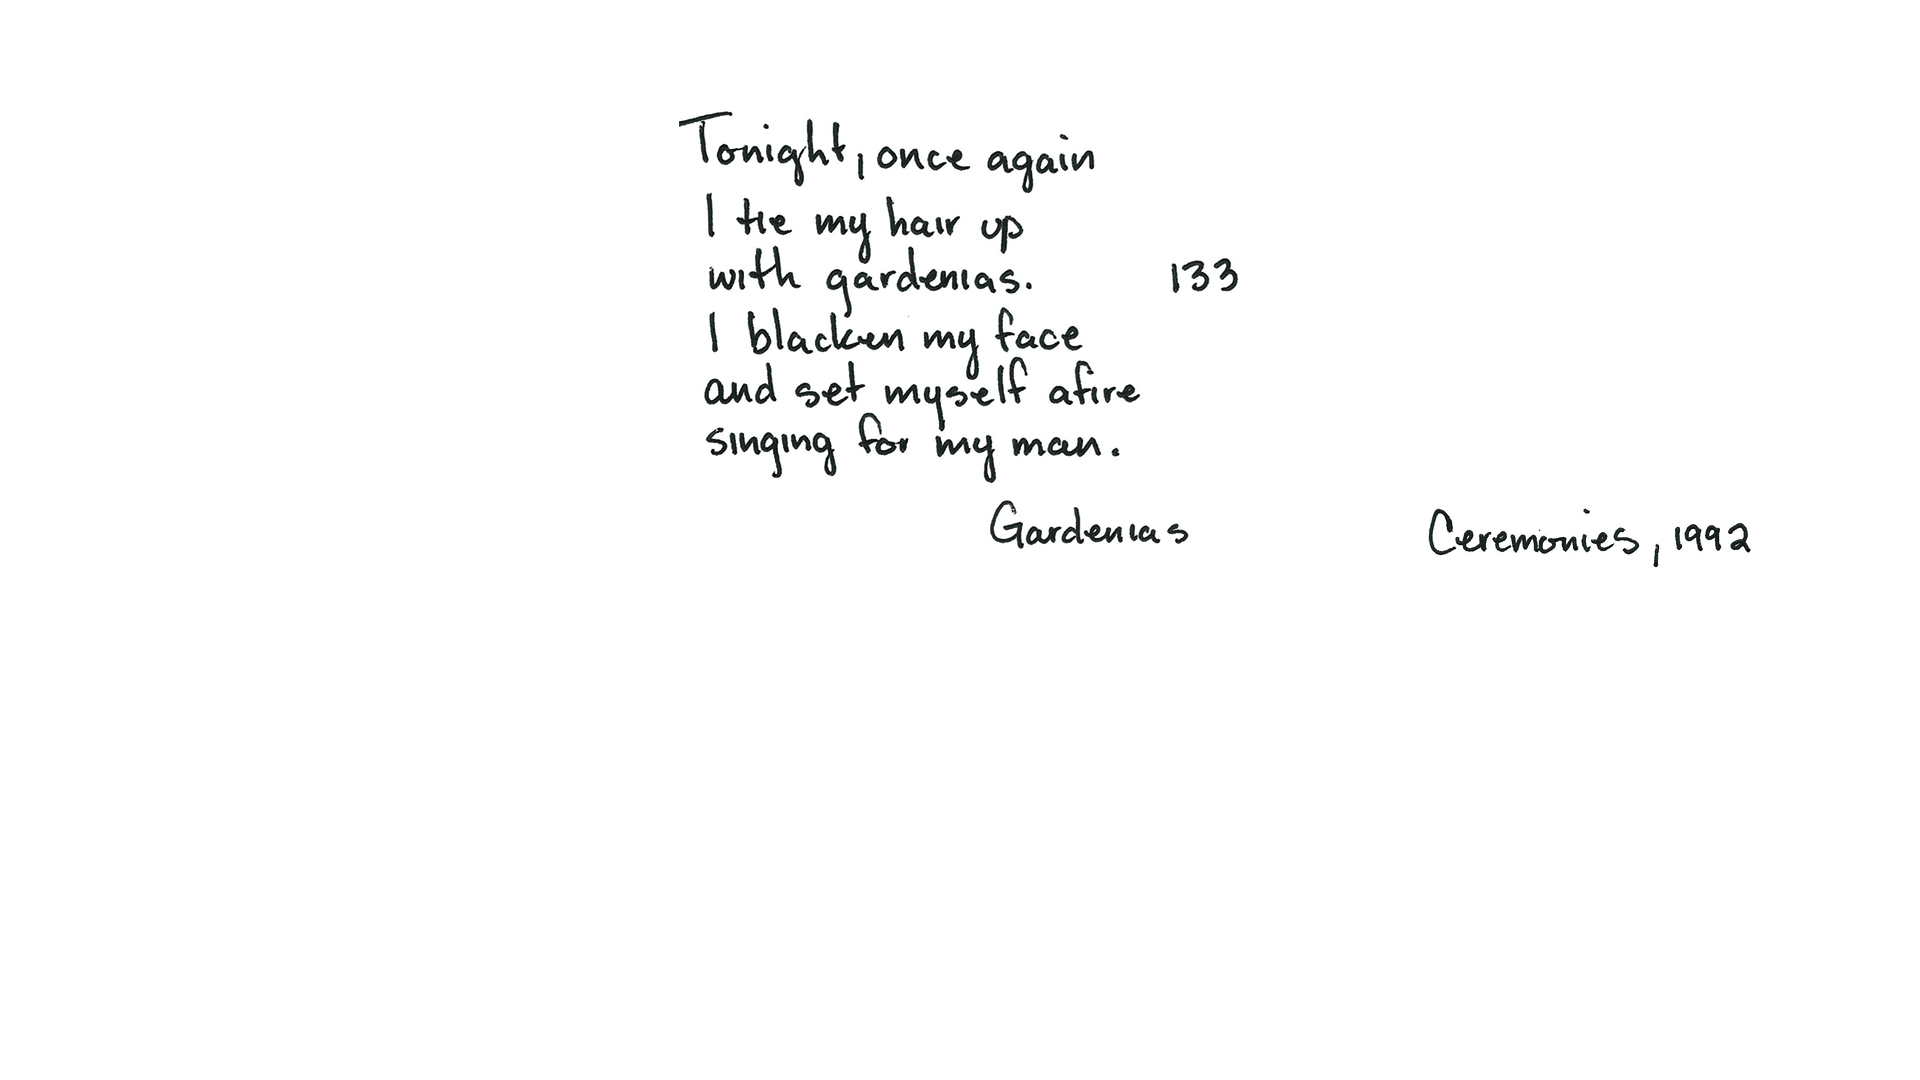 Tonight, once again
I tie my hair up
with gardenias. 133
I blacken my face
and set myself afire
singing for my man.
Gardenias Ceremonies, 1992